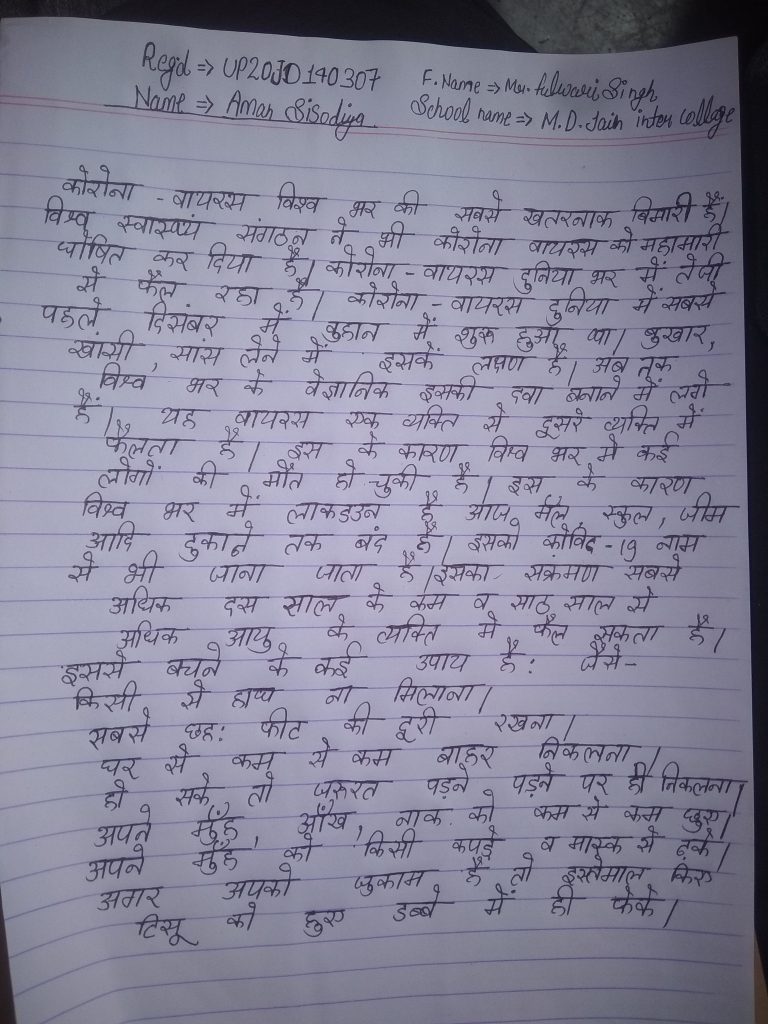 Regd ⇒ UP20JD140307
F. Name ⇒ Mr. Singh
Name ⇒ Aman Sisodiya
School name ⇒ M.D. Jain inter college
कोरोना - वायरस विश्व भर की सबसे खतरनाक बिमारी हैं।
विश्व स्वास्थ्य संगठन ने भी कोरोना वायरस को महामारी
घोषित कर दिया है। कोरोना - वायरस दुनिया भर में तेजी
से फैल रहा है। कोरोना - वायरस दुनिया में सबसे
पहले दिसंबर में वुहान में शुरू हुआ था। बुखार,
खांसी, सांस लेने में इसके लक्षण है। अब तक
विश्व भर के वैज्ञानिक इसकी दवा बनाने में लगे
हैं। यह वायरस एक व्यक्ति से दूसरे व्यक्ति में
फैलता है। इस के कारण विश्व भर मे कई
लोगों की मौत हो चुकी है। इस के कारण
विश्व भर में लाकडउन है आज मॉल, स्कुल, जीम
आदि दुकाने तक बंद है। इसको कोविद - 19 नाम
से भी जाना जाता है। इसका संक्रमण सबसे
अधिक दस साल के कम व साठ साल से
अधिक आयु के व्यक्ति मे फैल सकता है।
इससे बचने के कई उपाय है: जैसे-
किसी से हाथ ना मिलाना।
सबसे छह: फीट की दूरी रखना।
घर से कम से कम बाहर निकलना।
हो सके तो जरूरत पड़ने पड़ने पर ही निकलना।
अपने मुँह, आँख, नाक को कम से कम छुए।
अपने मुँह को किसी कपड़े व मास्क से ढ़के।
अगर अपको जुकाम है तो इस्तेमाल किए
टिसू को हुए डब्बे में ही फेके।